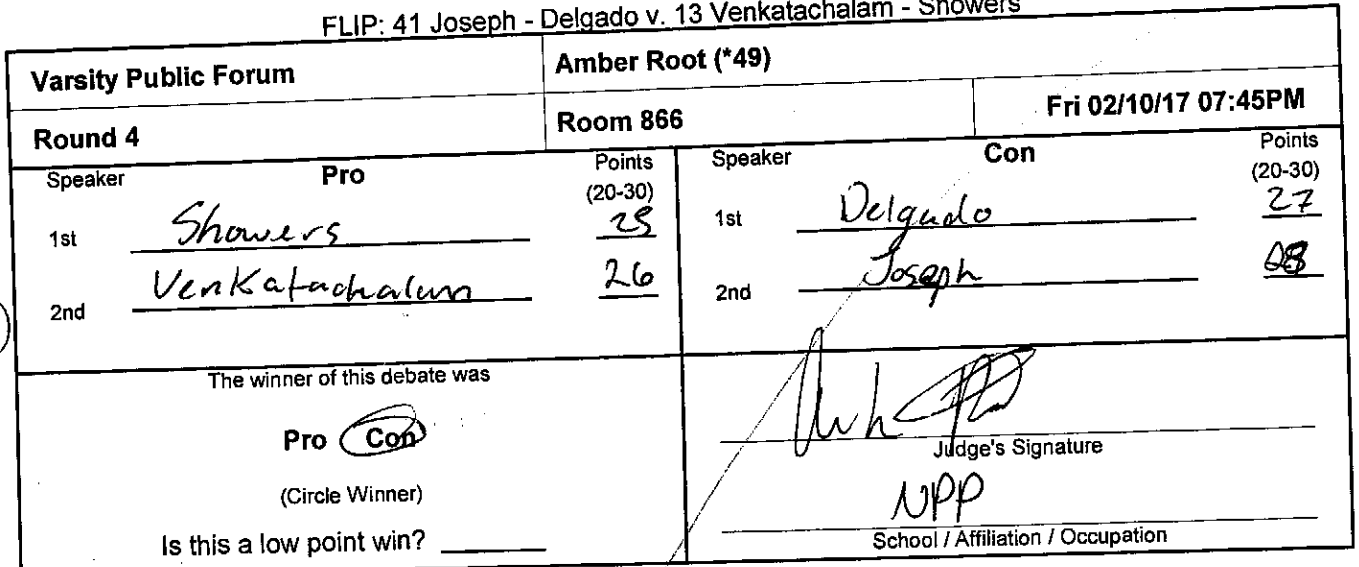 FLIP: 41 Joseph - Delgado v. 13 Venkatachalam - Showers
Varsity Public Forum
Amber Root (*49)
Round 4
Room 866
Fri 02/10/17 07:45PM
Speaker Pro Points
(20-30)
1st Showers
2nd Venkatachalam 26
Speaker Con Points
(20-30)
1st Delgado 27
2nd Joseph 28
The winner of this debate was
Pro Con
(Circle Winner)
Is this a low point win?
Judge's Signature
NPP
School / Affiliation / Occupation